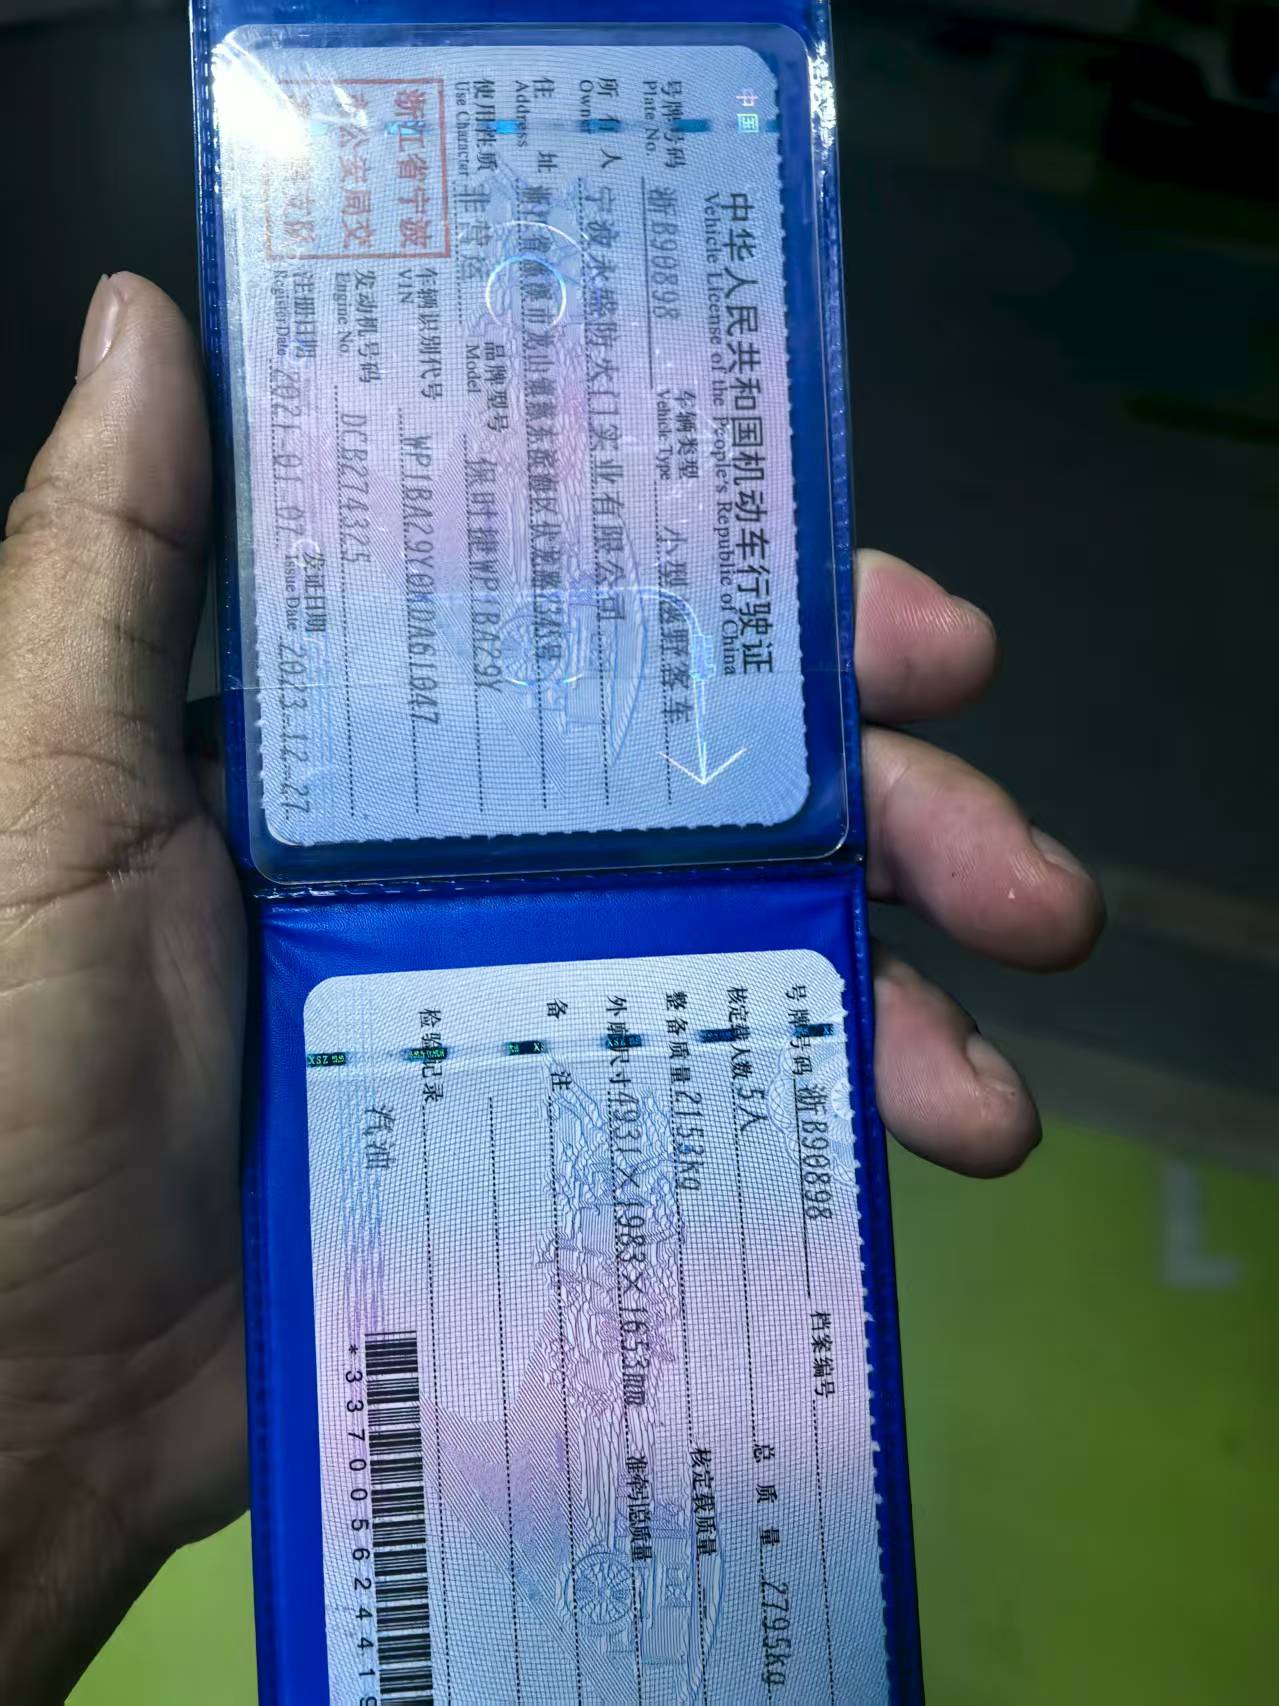 中国
中华人民共和国机动车行驶证
Vehicle License of the People's Republic of China
号牌号码 浙B90898 车辆类型 小型越野客车
Plate No. Vehicle Type
所有人 宁波永盛防火门实业有限公司
Owner
住址 浙江省慈溪市龙山镇慈东滨海区伏龙路
Address
使用性质 非营运 品牌型号 保时捷WP1BA29Y
Use Character Model
浙江省宁波
市公安局交
车辆识别代号 WP1BA29Y0MDA61047
VIN
发动机号码 DCB274325
Engine No.
注册日期 2021-01-07 发证日期 2023-12-27
Register Date Issue Date
号牌号码 浙B90898 档案编号
核定载人数 5人 总质量 2795kg
整备质量 2153kg 核定载质量
外廓尺寸 4931×1983×1653mm 准牵引总质量
备注
检验记录
汽油
*33700562441